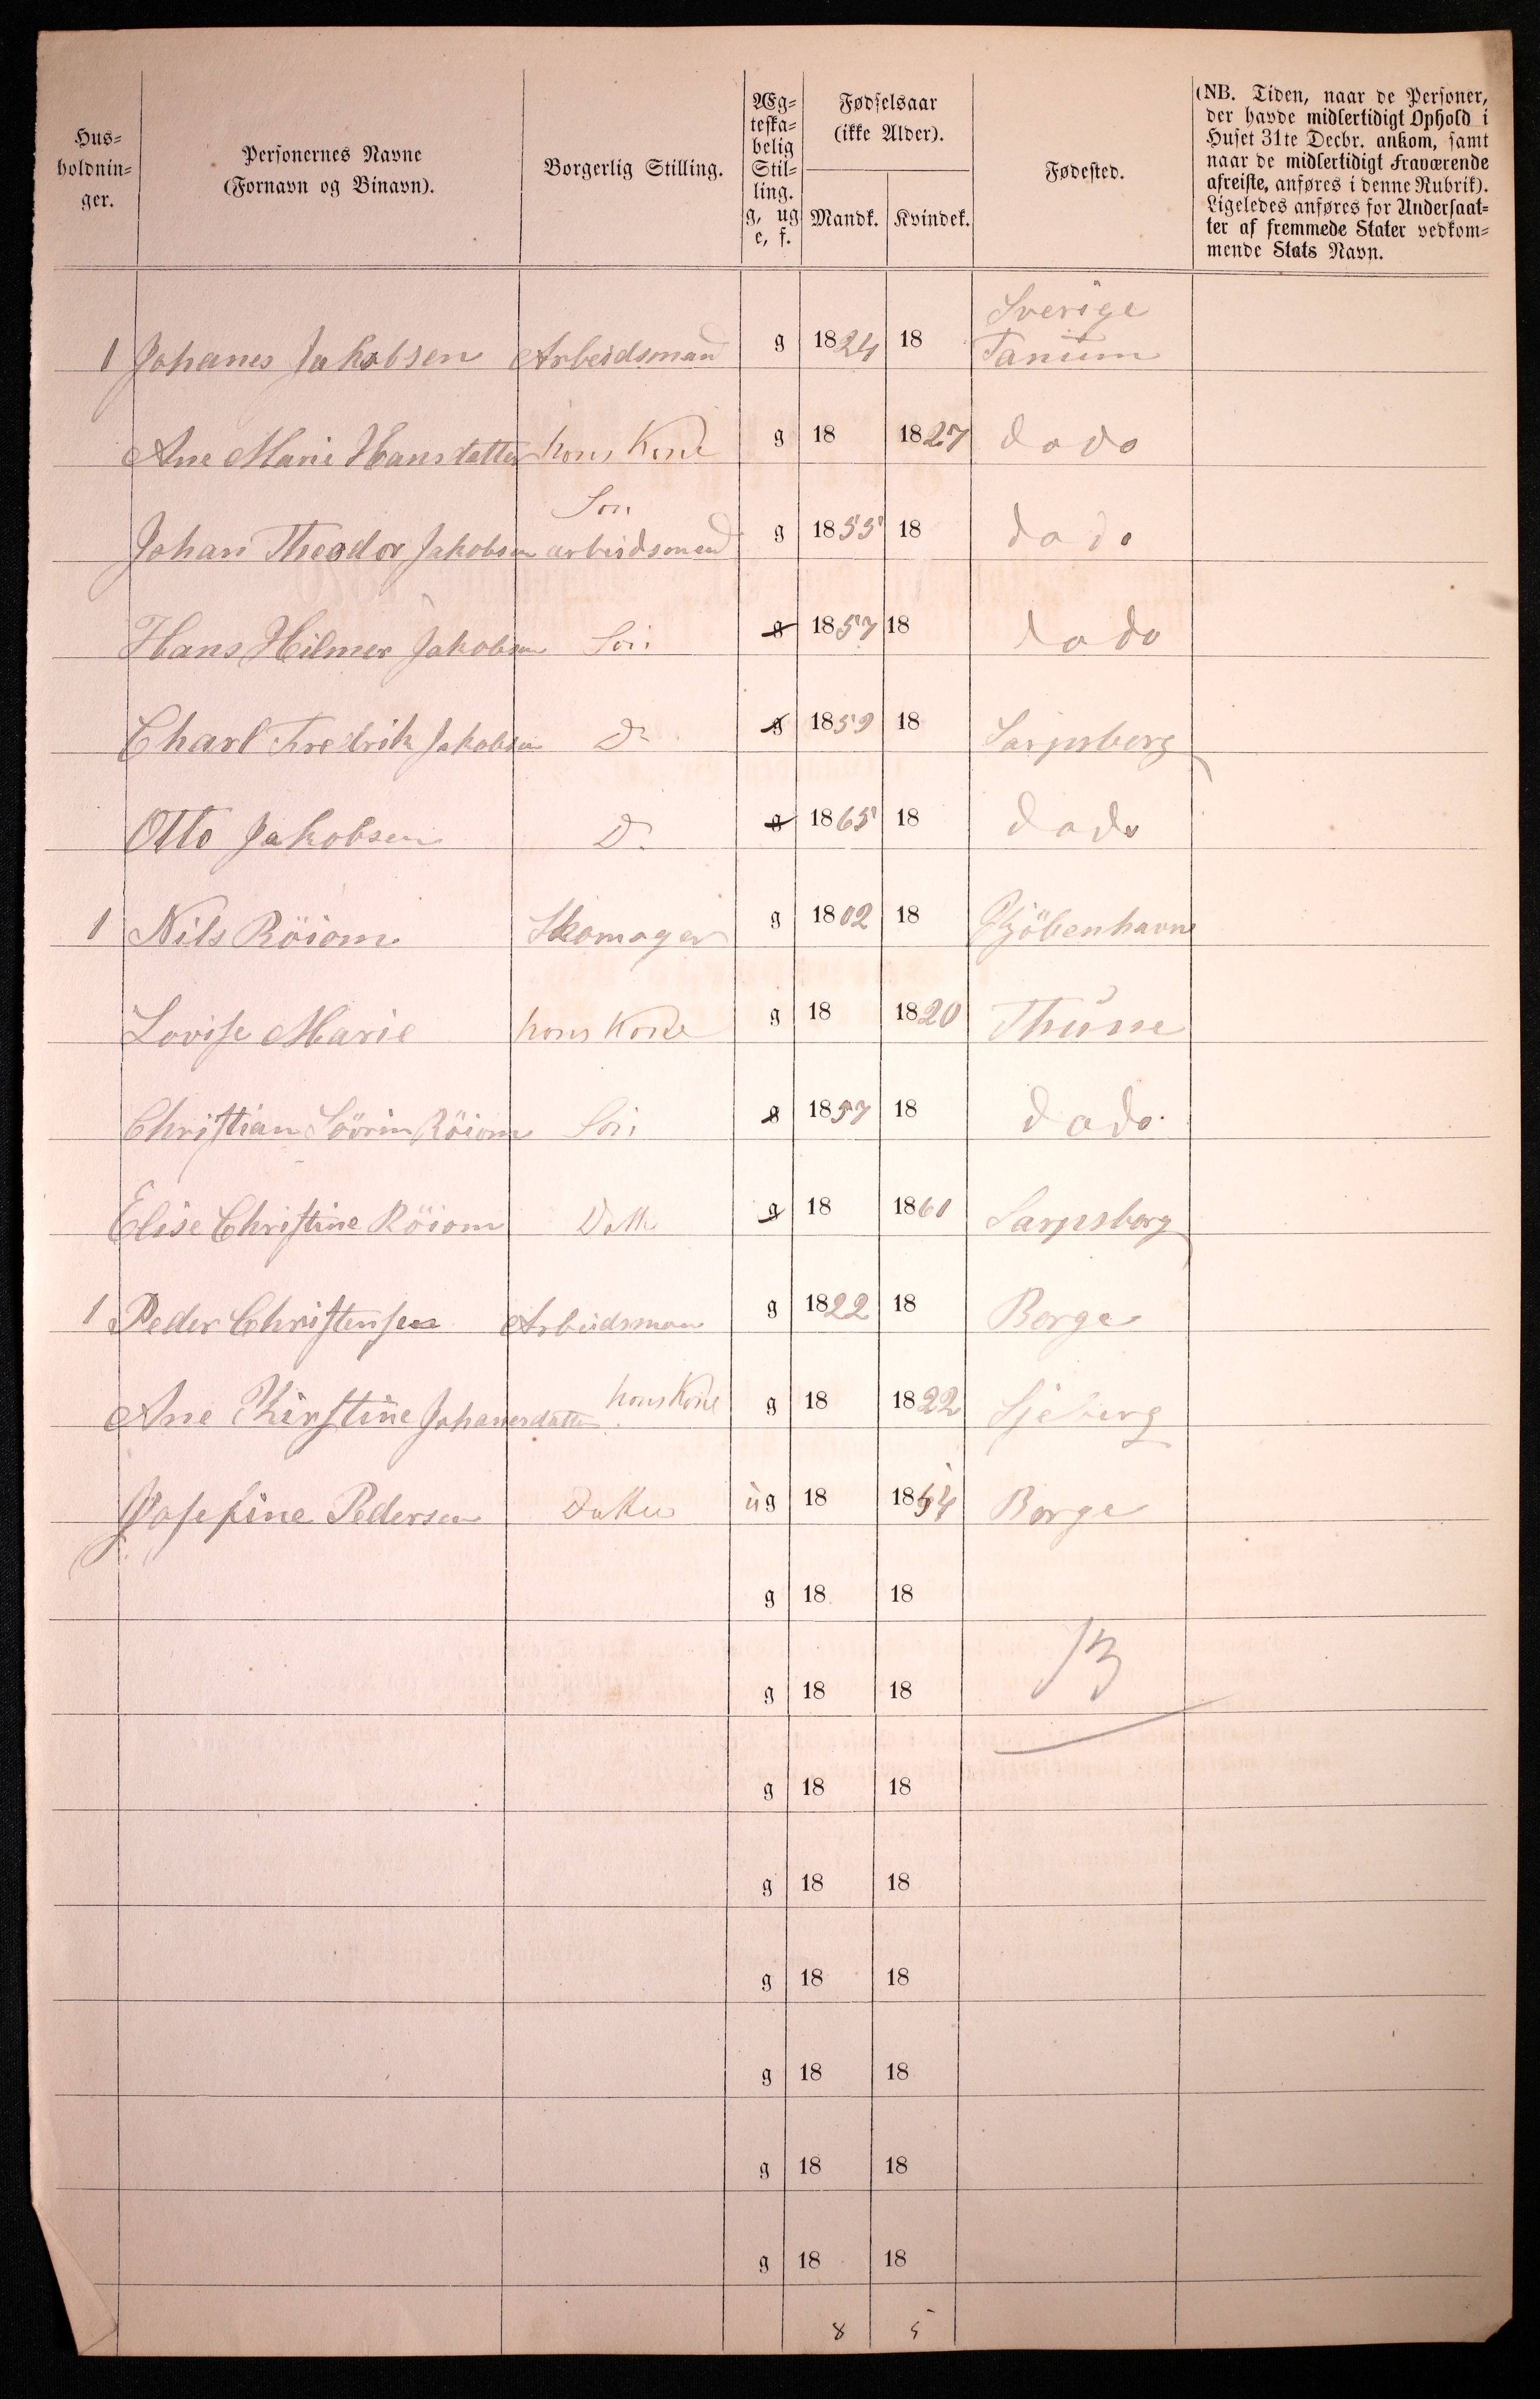 Hus-
holdnin-
ger.
Personernes Navne
(Fornavn og Binavn).
Borgerlig Stilling.
Æg-
teska-
belig
Stil-
ling.
g, ug
e, f.
Fødselsaar
(ikke Alder).
Mandk. Kvindek.
Fødested.
(NB. Tiden, naar de Personer,
der havde midlertidigt Ophold i
Huset 31te Decbr. ankom, samt
naar de midlertidigt Fraværende
afreiste, anføres i denne Rubrik).
Ligeledes anføres for Undersaat-
ter af fremmede Stater vedkom-
mende Stats Navn.
Sverige
1 Johanes Jakobsen Arbeidsmand g 1824 18 Tanum
Ane Marie Hansdatter hans Kone g 18 1827 do do
Søn
Johan Theodor Jakobsen arbeidsmand g 1855 18 do do
Hans Hilmer Jakobsen Søn g 1857 18 do do
Charl Fredrik Jakobsen Do g 1859 18 Sarpsborg
Otto Jakobsen Do g 1865 18 do do
1 Nils Röiom Skomager g 1802 18 Kjöbenhavn
Lovise Marie hans Kone g 18 1820 Thune
Christian Söörin Röiom Søn g 1857 18 do do
Elise Christine Röiom Datt g 18 1860 Sarpsborg
1 Peder Christensen Arbeidsman g 1822 18 Borge
Ane Kirstine Johanesdatter hans Kone g 18 1822 Sjeberg
Josefine Pedersen Datter ug 18 1854 Borge
g 18 18
g 18 18 13
g 18 18
g 18 18
g 18 18
g 18 18
g 18 18
g 18 18
8 5